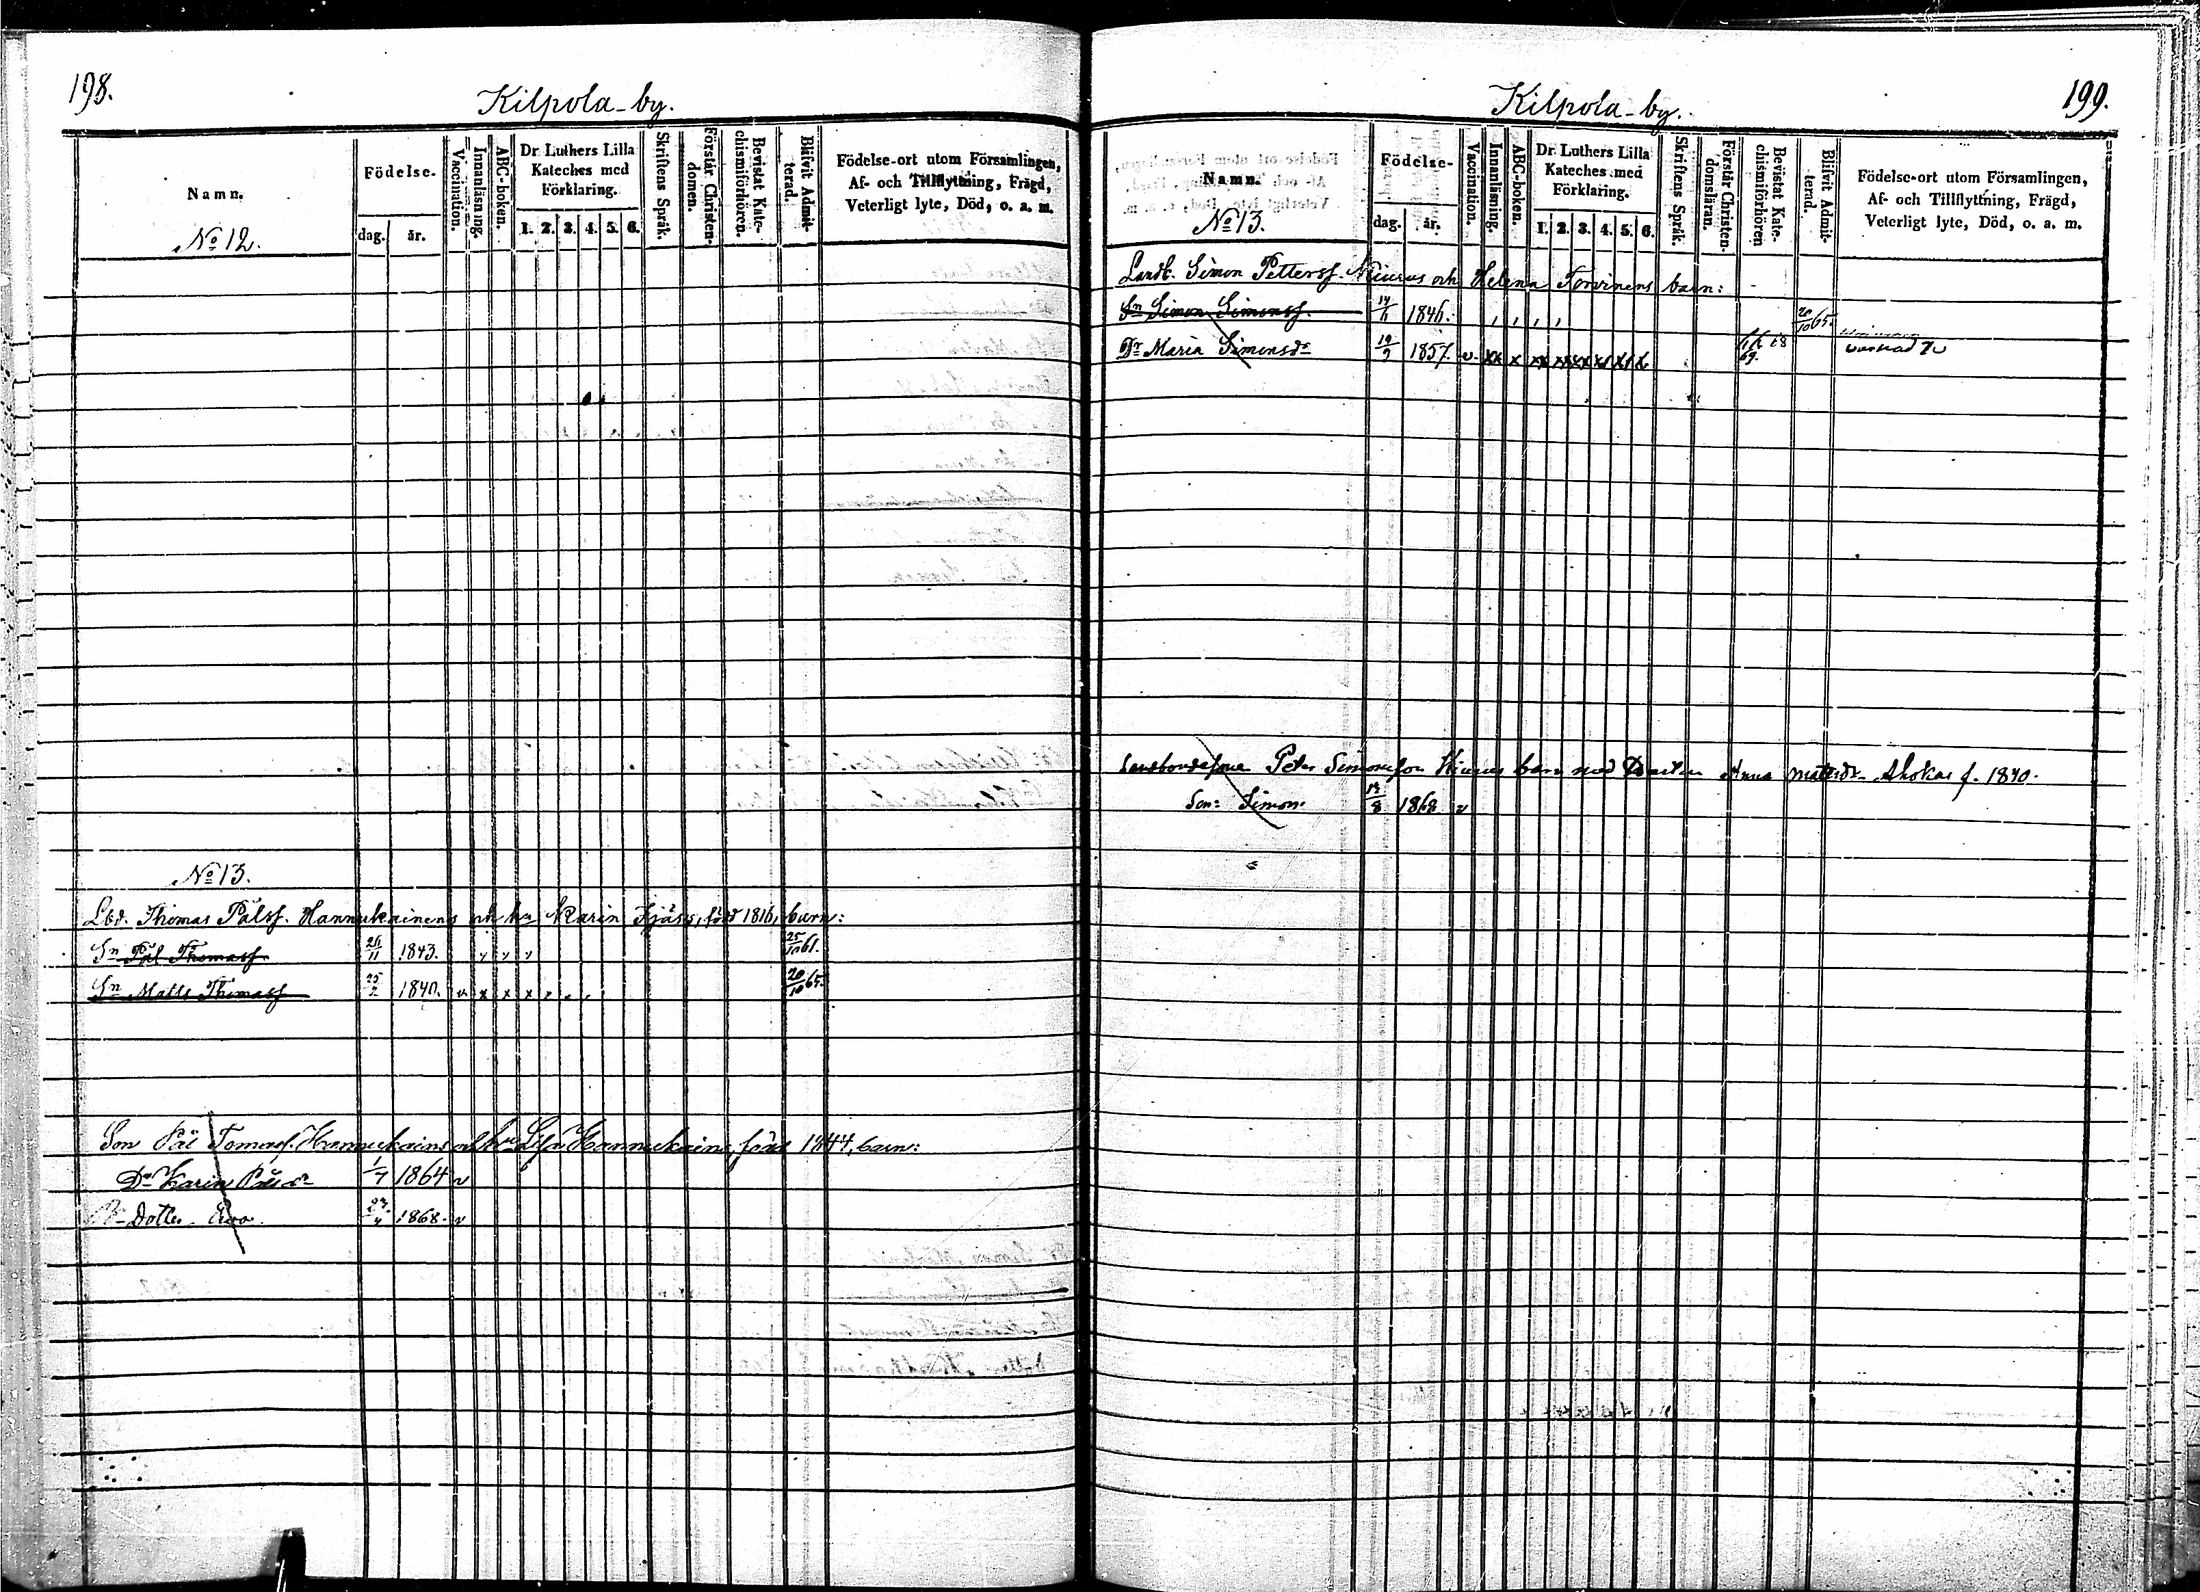 198.
Kilpola-by.
Namn.
Födelse.
dag. år.
Vaccination.
Innanläsning.
ABC-boken.
Dr Luthers Lilla Kateches med Förklaring.
1. 2. 3. 4. 5. 6.
Skriftens Språk.
Förstår Christendomen.
Bevistat Katechismiförhören.
Blifvit Admitterad.
Födelse-ort utom Församlingen,
Af- och Tillflyttning, Frägd,
Veterligt lyte, Död, o. a. m.
No 12.
No 13.
Lbd. Thomas Pålss. Hannukainens och hu Karin Kjäss, född 1816, barn:
Sn Pål Thomass. 26/11 1843. 25/10 61.
Sn Matts Thomass 25/2 1840. v x x x 20/10 65.
Son Pål Tomass. Hannukains och hu Lisa Hannukain, född 1844, barn:
Dr Karin Pålsdr 1/7 1864 v
Dotter Eva. 1868. v
199.
Kilpola-by.
Namn.
No 13.
Födelse-
dag. år.
Vaccination.
Innanläsning.
ABC-boken.
Dr Luthers Lilla Kateches med Förklaring.
1. 2. 3. 4. 5. 6.
Skriftens Språk.
Förstår Christendomsläran.
Bevistat Katechismiförhören
Blifvit Admitterad.
Födelse-ort utom Församlingen,
Af- och Tillflyttning, Frägd,
Veterligt lyte, Död, o. a. m.
Landb. Simon Petterss. Kiurus och Helena Torvinens barn:
Sn Simon Simonss. 1846. 20/10 65.
Dr Maria Simonsdr 19/9 1857. v. xx x 68 69.
Landbondesone Peter Simonsson Kiurus barn med Anna Mattsdr Ahokas f. 1840.
Son: Simon 1868 v